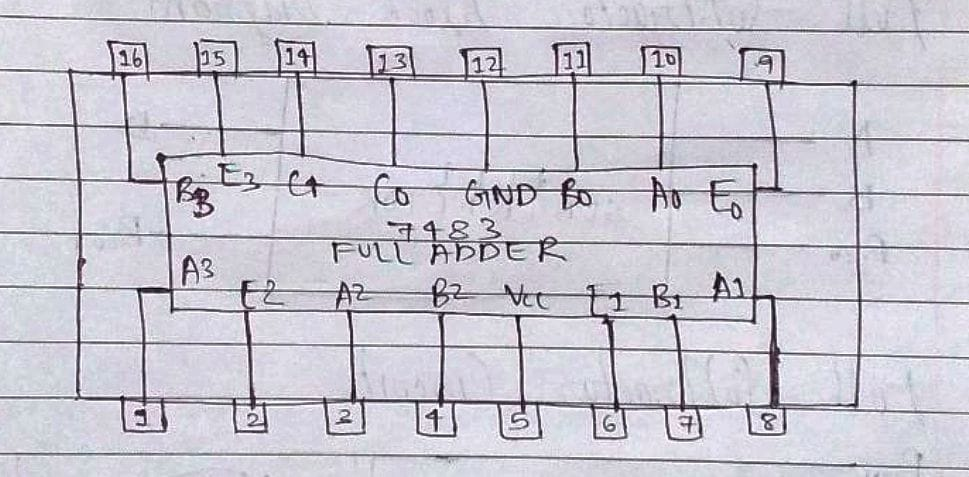 16 15 14 13 12 11 10 9
B3 E3 C4 C0 GND B0 A0 E0
7483
FULL ADDER
A3 E2 A2 B2 Vcc E1 B1 A1
1 2 3 4 5 6 7 8